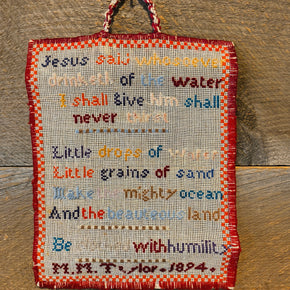 Jesus said whosoever
drinketh of the water
I shall give him shall
never thirst
Little drops of water
Little grains of sand
Make mighty ocean
And the beauteous land
Be with humility
M.M.T lor. 1894.